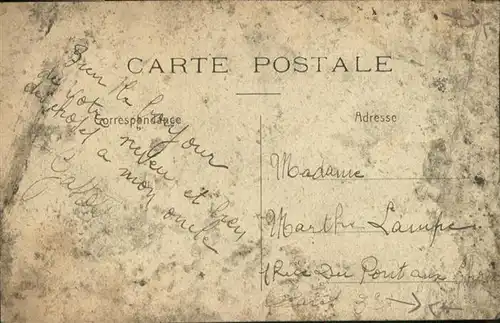 CARTE POSTALE
Correspondance
Adresse
Bien le bonjour
de votre neveu et bien
de chose a mon oncle
Madame
Marthe Lampe
Rue du Pont aux